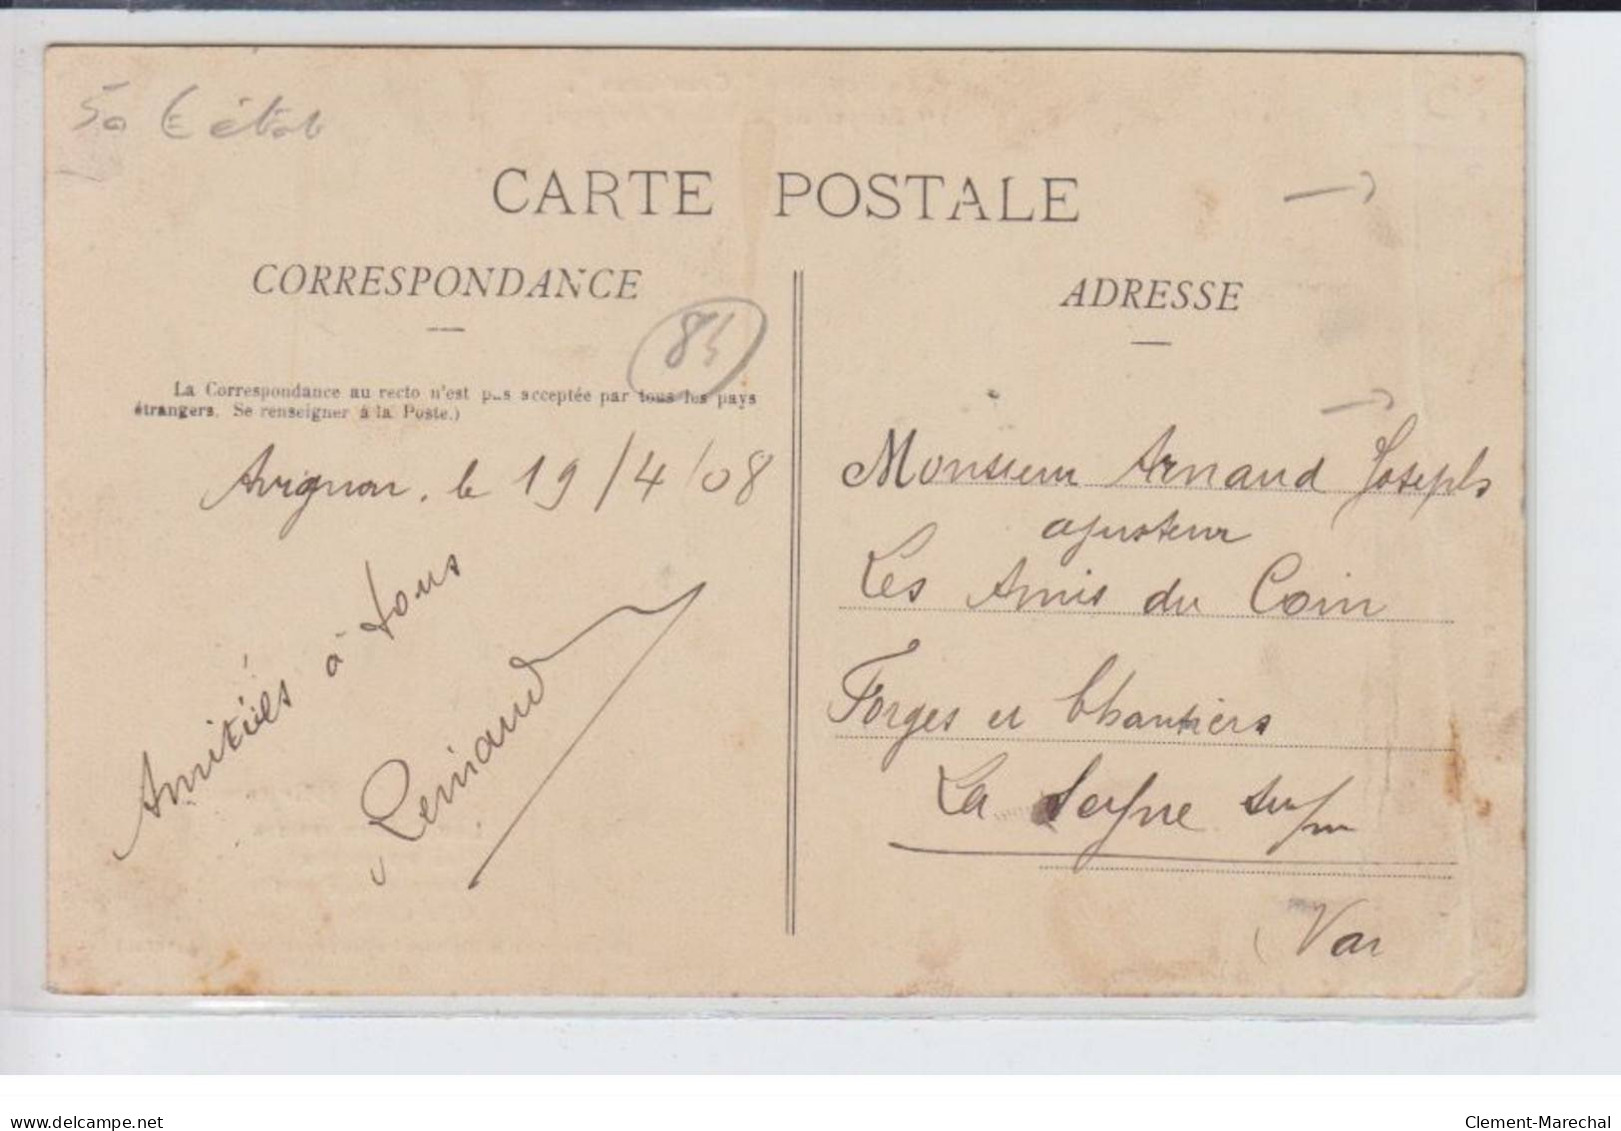 50 € état
CARTE POSTALE
CORRESPONDANCE
84
La Correspondance au recto n'est pas acceptée par tous les pays
étrangers. Se renseigner à la Poste.)
Avignon, le 19/4/08
Amitiés à tous
ADRESSE
Monsieur Arnaud Joseph
ajusteur
Les Amis du Coin
Forges et Chantiers
La Seyne sur/m
Var
www.delcampe.net
Clement-Marechal